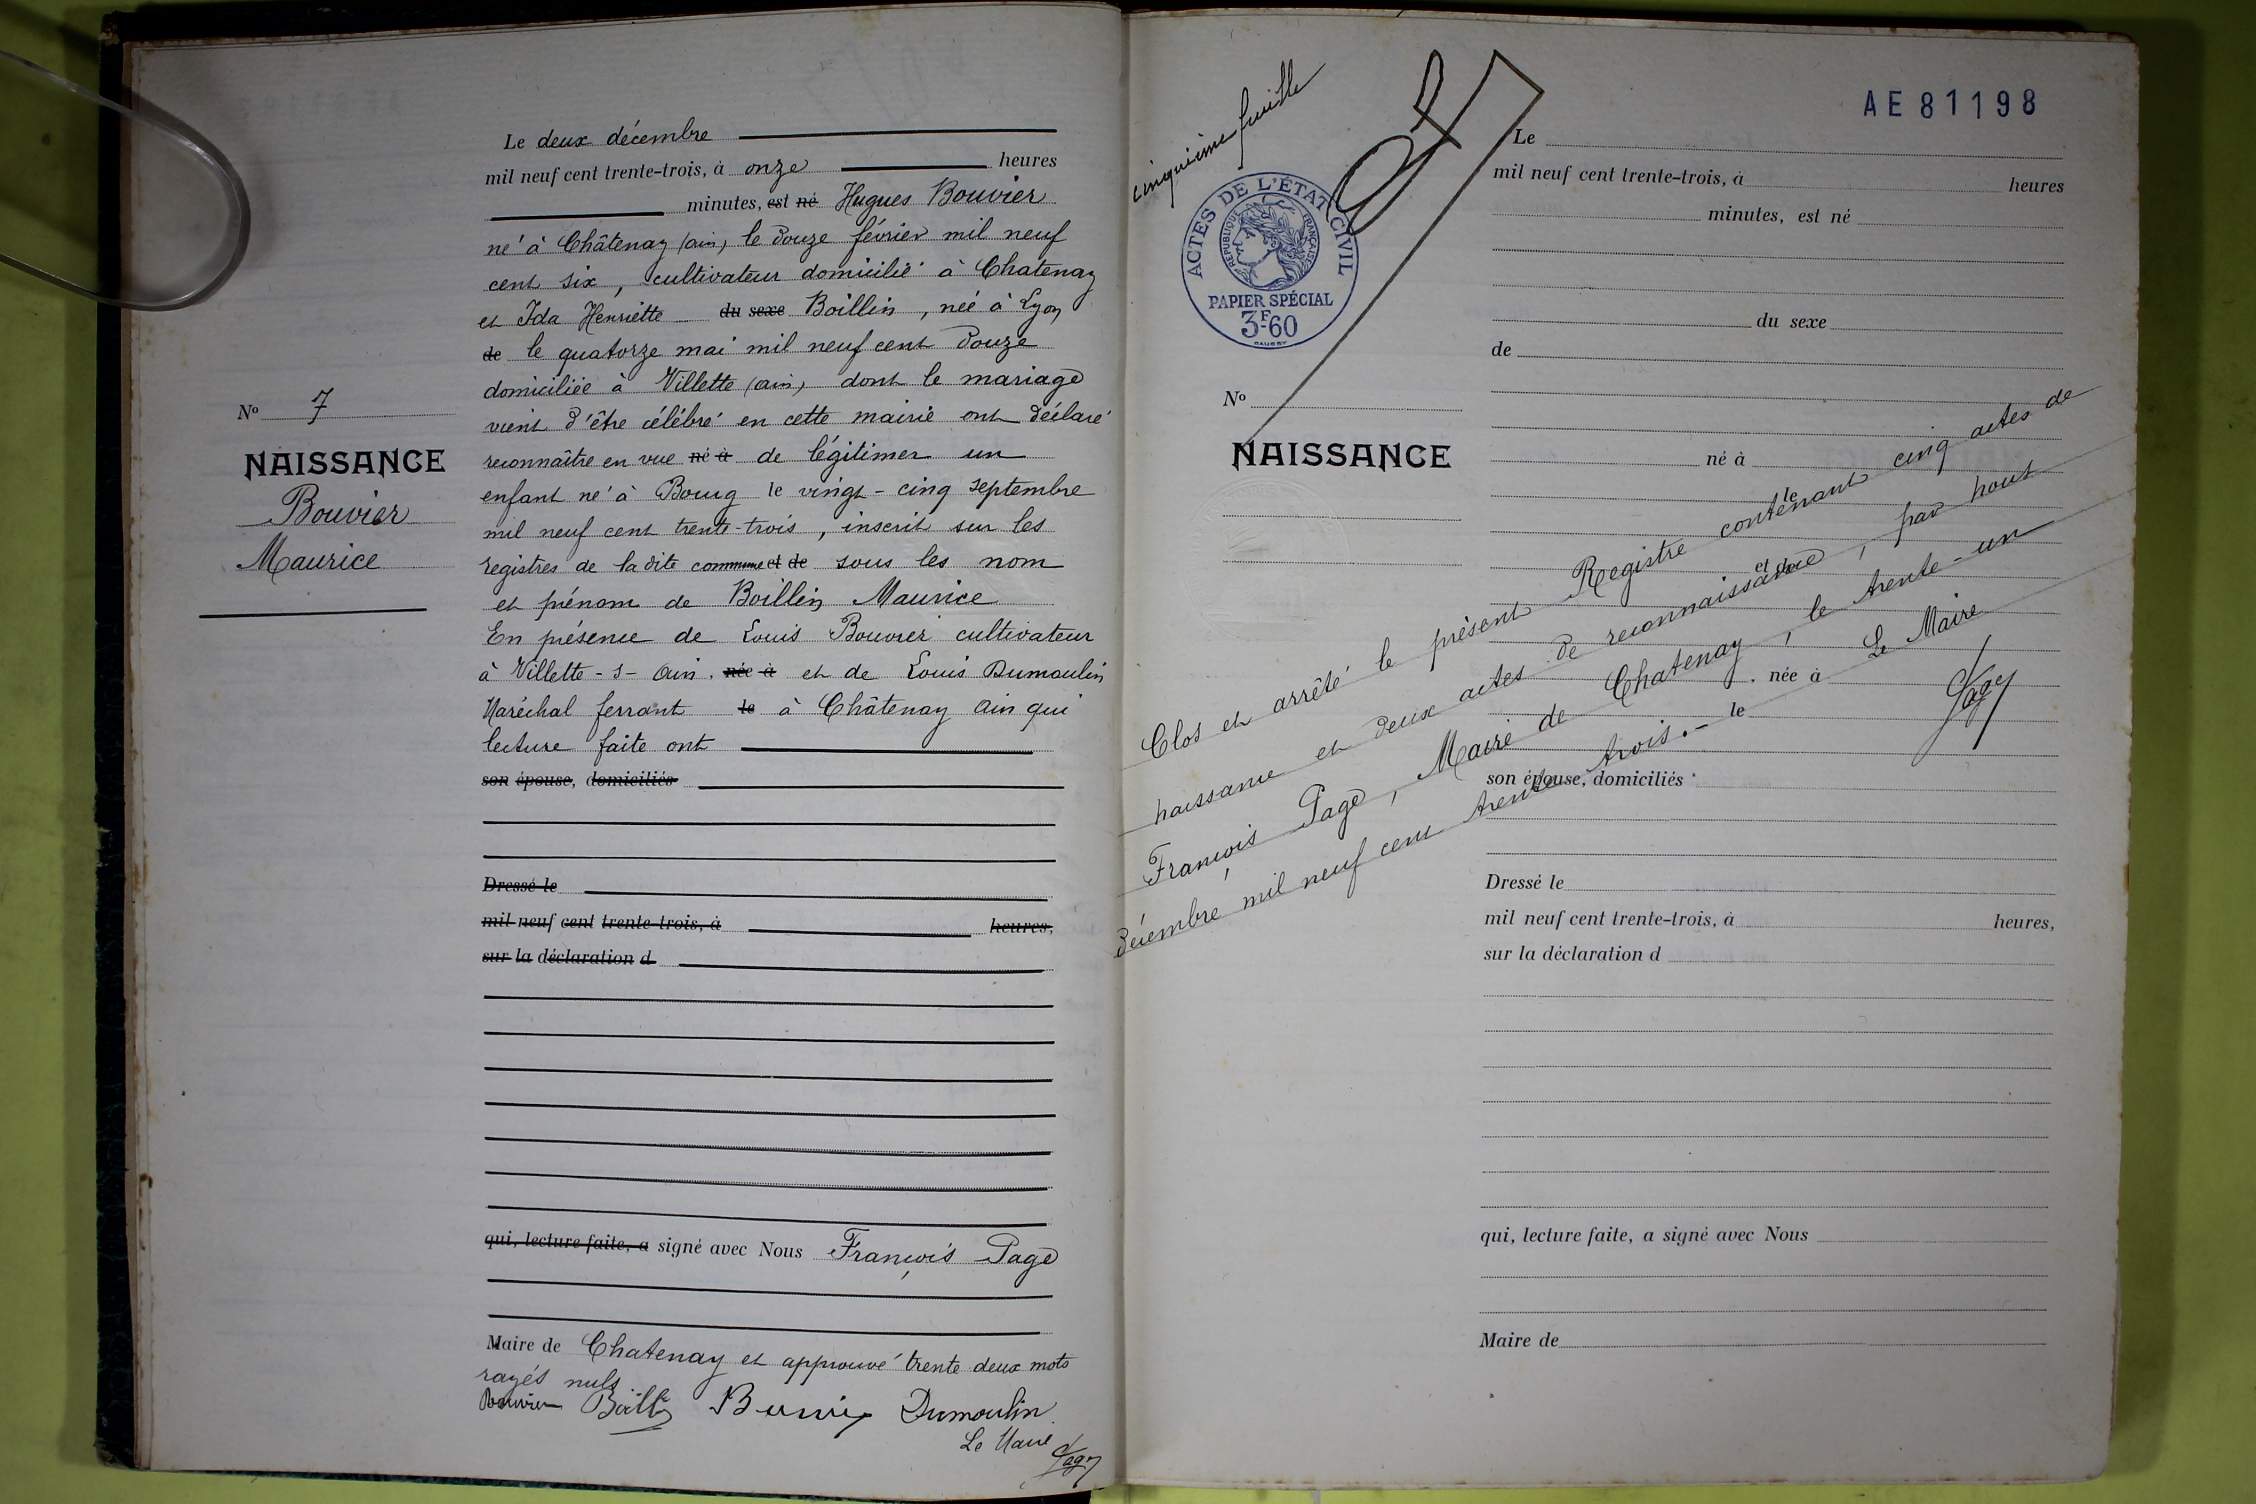 Le deux décembre
mil neuf cent trente-trois, à onze heures
minutes, est né Hugues Bouvier
né à Châtenay (ain), le douze février mil neuf
cent six, cultivateur domicilié à Chatenay
et Ida Henriette du sexe Boillin, née à Lyon
de le quatorze mai mil neuf cent douze
domiciliée à Villette (ain), dont le mariage
vient d'être célébré en cette mairie ont déclaré
reconnaître en vue né à de légitimer un
enfant né à Bourg le vingt-cinq septembre
mil neuf cent trente-trois, inscrit sur les
registres de ladite commune et de sous les nom
et prénom de Boillin Maurice
En présence de Louis Bouvier cultivateur
à Villette-s-Ain. née à et de Louis Dumoulin
Maréchal ferrant le à Châtenay Ain qui
lecture faite ont
son épouse, domiciliés
Dressé le
mil neuf cent trente-trois, à heures,
sur la déclaration d
qui, lecture faite, a signé avec Nous François Page
Maire de Chatenay et approuvé trente deux mots
rayés nuls
Bouvier Boillin Bouvier Dumoulin
Le Maire
Page
No 7
NAISSANCE
Bouvier
Maurice
cinquième feuille
AE 81198
ACTES DE L'ÉTAT CIVIL
REPUBLIQUE FRANÇAISE
PAPIER SPÉCIAL
3F-60
Le
mil neuf cent trente-trois, à heures
minutes, est né
du sexe
de
No
NAISSANCE
né à
le
et de
Clos et arrêté le présent Registre contenant cinq actes de
naissance et deux actes de reconnaissance, par nous
François Page, Maire de Chatenay, le trente-un
décembre mil neuf cent trente trois.-
Le Maire
Page
, née à
le
son épouse, domiciliés
Dressé le
mil neuf cent trente-trois, à heures,
sur la déclaration d
qui, lecture faite, a signé avec Nous
Maire de